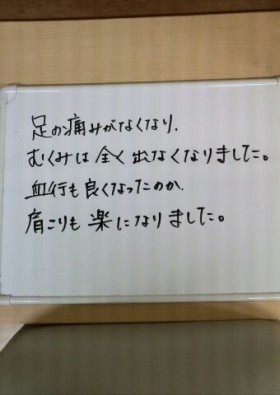 足の痛みがなくなり、
むくみは全く出なくなりました。
血行も良くなったのか、
肩こりも楽になりました。